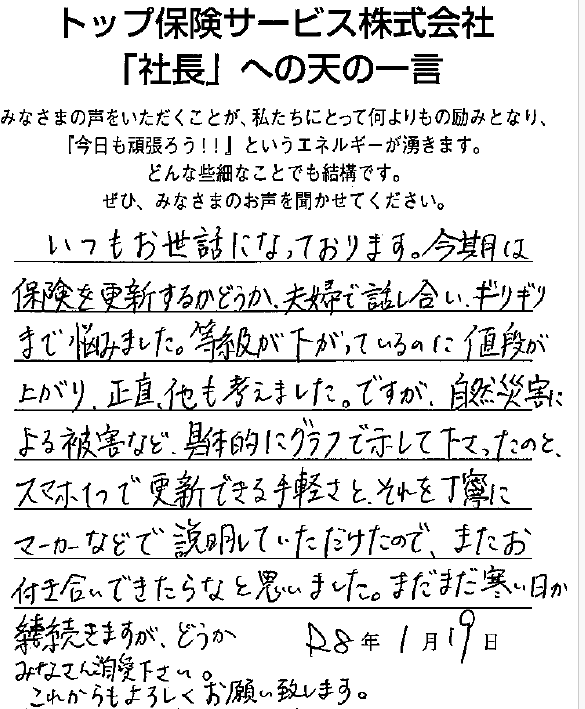 トップ保険サービス株式会社
「社長」への天の一言
みなさまの声をいただくことが、私たちにとって何よりもの励みとなり、
『今日も頑張ろう!!』というエネルギーが湧きます。
どんな些細なことでも結構です。
ぜひ、みなさまのお声を聞かせてください。
いつもお世話になっております。今期は
保険を更新するかどうか、夫婦で話し合い、ギリギリ
まで悩みました。等級が下がっているのに値段が
上がり、正直、他も考えました。ですが、自然災害に
よる被害など、具体的にグラフで示して下さったのと、
スマホ1つで更新できる手軽さと、それを丁寧に
マーカーなどで説明していただけたので、またお
付き合いできたらなと思いました。まだまだ寒い日が
続きますが、どうか
R8年1月19日
みなさんご自愛下さい。
これからもよろしくお願い致します。